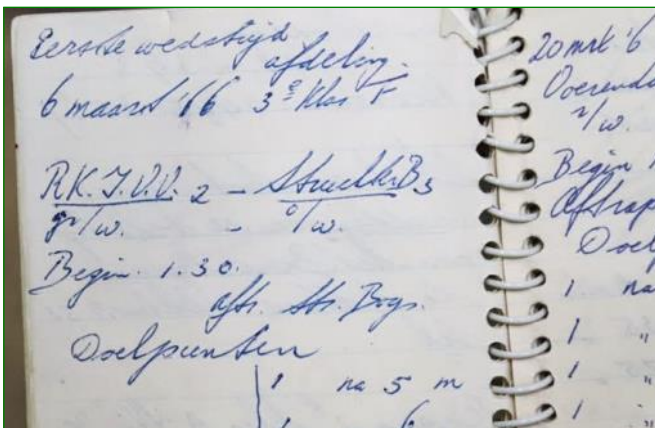 Eerste wedstrijd
afdeling.
6 maart '66 3e Klas F
R.K.I.V.V. 2 - B 3
gr/w. - /w.
Begin. 1.30.
aftr. Str. Boys.
Doelpunten
1 na 5 m
1 6
20 mrt '6
Voerenda
/w.
Begin 1
Aftrap
Doel
1 na
1 "
1 "
1 "